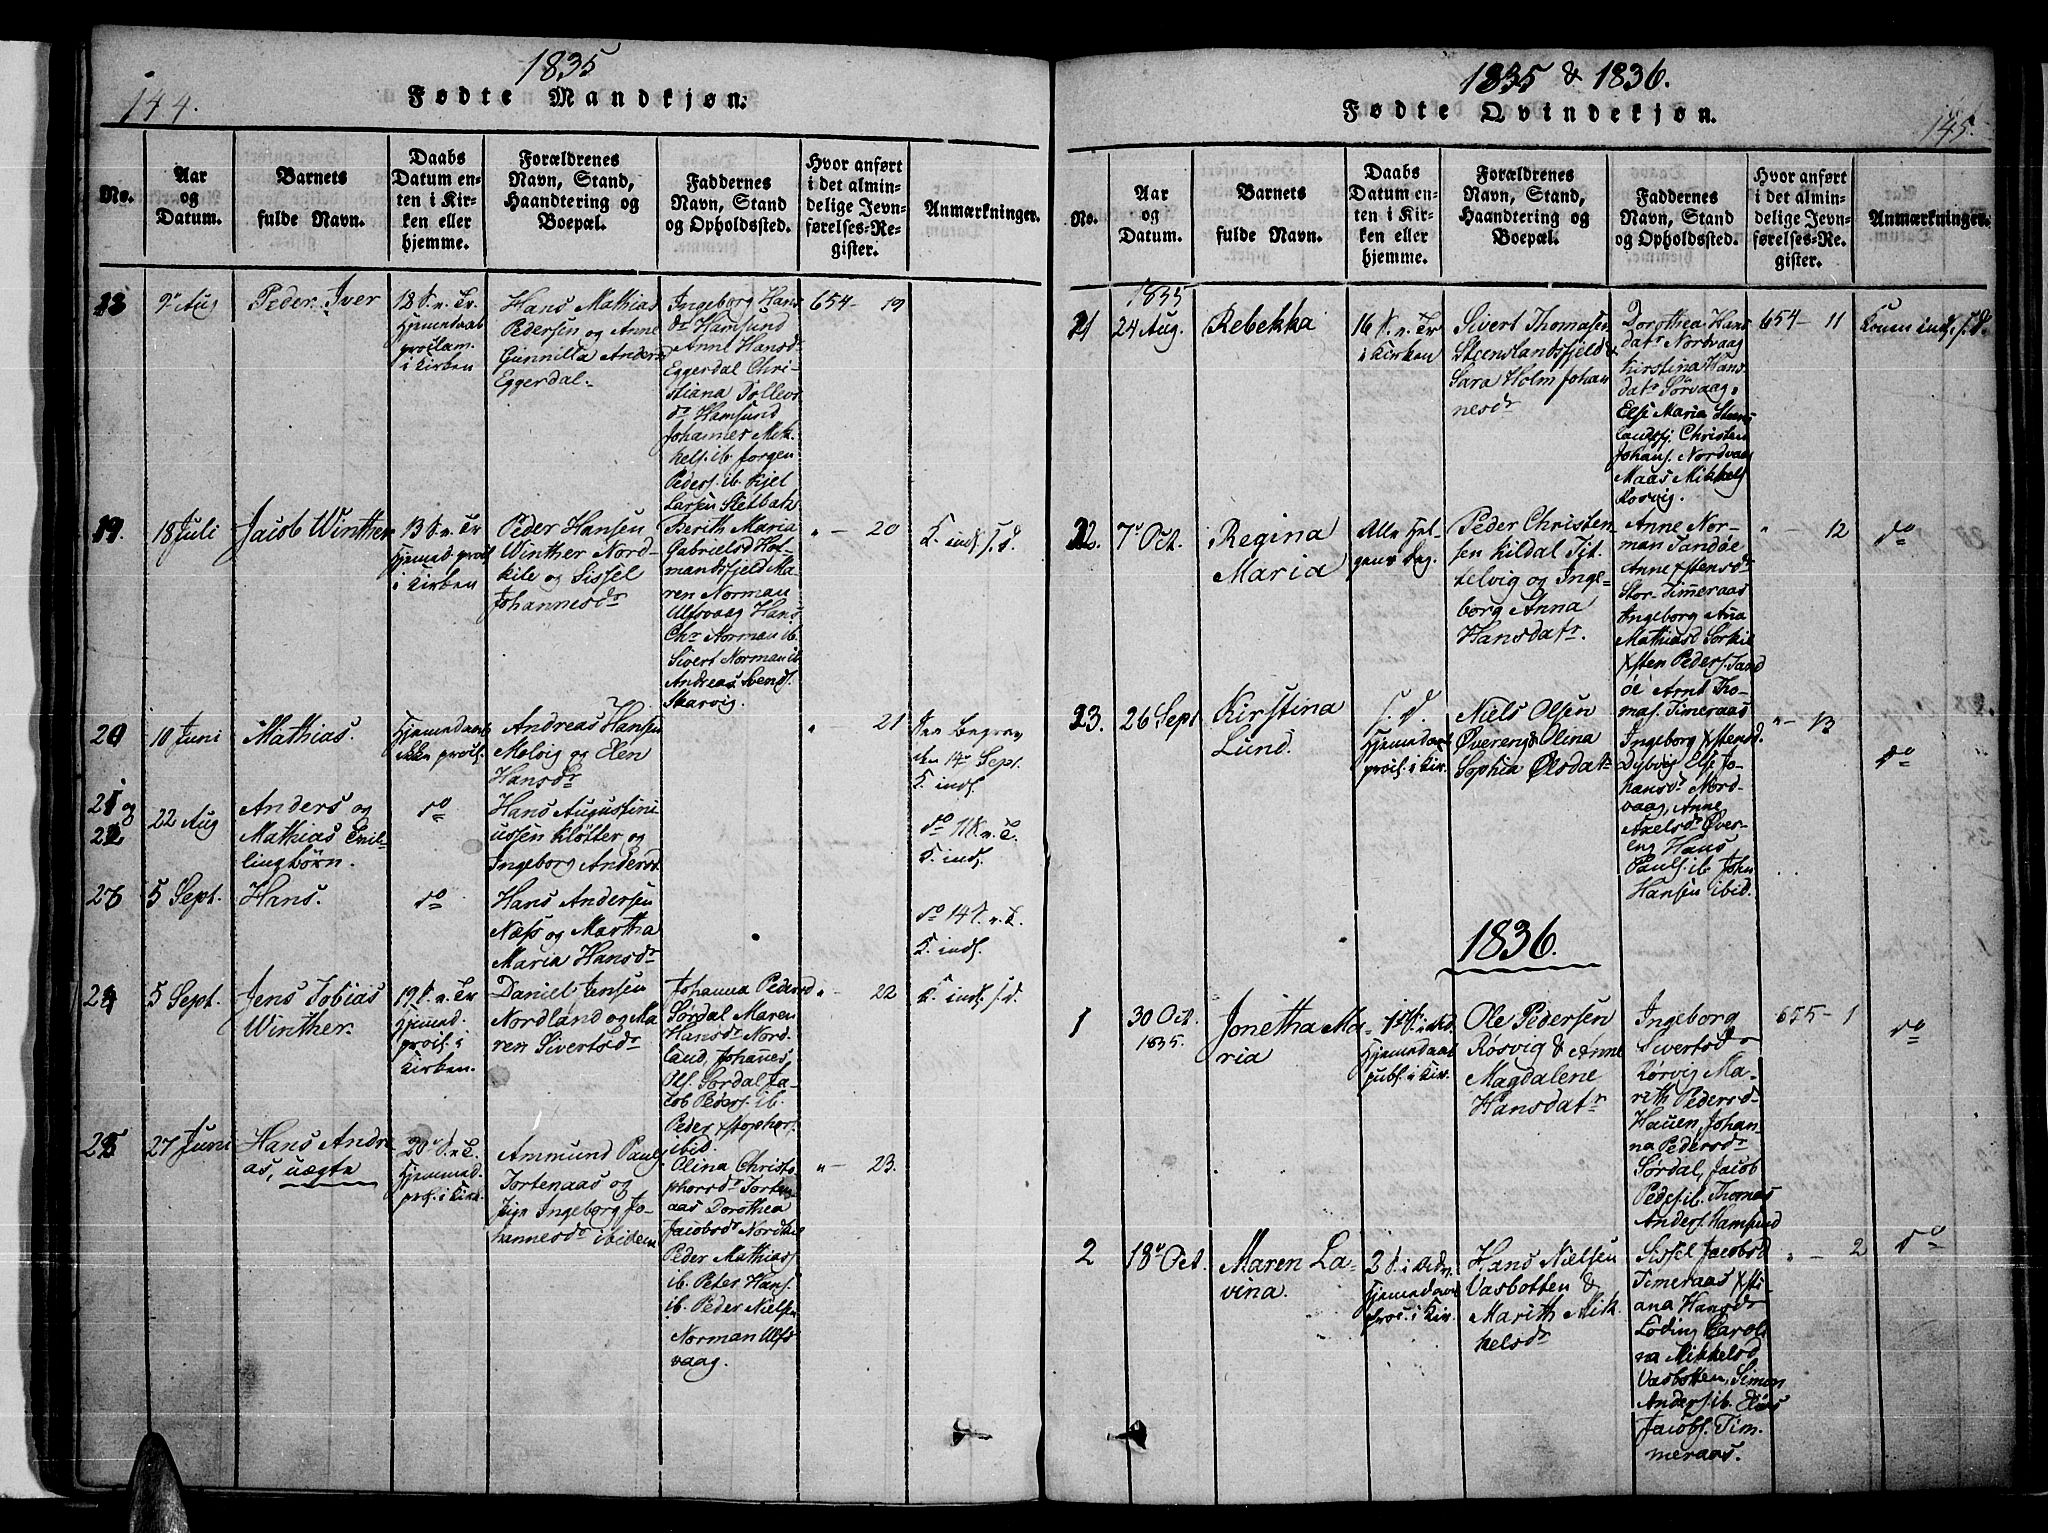 144.
1835
Fødte Mandkjøn.
No.
Aar
og
Datum.
Barnets
fulde Navn.
Daabs
Datum en-
ten i Kir-
ken eller
hjemme.
Forældrenes
Navn, Stand,
Haandtering og
Boepæl.
Faddernes
Navn, Stand
og Opholdssted.
Hvor anført
i det almin-
delige Jevn-
førelses-Re-
gister.
Anmærkninger.
9de Aug
Peder Iver
18 S. e. Tr.
Hjemedaab
proclam.
i Kirken
Hans Mathias
Pedersen og Anne
Gunnilla Andersd
Eggerdal.
Ingeborg Hans
dr Hamsund
Anne Hansd.
Eggerdal Chri-
stiana Tollevs
dr Hamsund
Johannes Mik-
kels. ib. Jørgen
Peders. ib. Kjel
Larsen Sletbak
654 - 19
19.
18 Juli
Jacob Winther
13 S. e. Tr
Hjemed. procl
i Kirken
Peder Hansen
Winther Nord-
kile og Sissel
Johannesdr
Berith Maria
Gabrielsd Hot-
mandsfjeld Ma-
ren Norman
Ulfsvaag Hans
Chr. Norman ib.
Sivert Norman ib
Andreas Svends.
Skarvig.
" - 20
K. inds. s. d.
20
10 Juni
Mathias.
Hjemedaab
ikke procl.
Andreas Hansen
Molvig og Elen
Hansdr
" - 21
den 14de Sept.
K. inds.
21 og
22
22 Aug
Anders og
Mathias Tvil-
lingbørn.
do
Hans Augustini
ussen Kløtter og
Ingeborg Andersd.
do 11 S. e. T.
K. inds.
23
5 Sept.
Hans.
do
Hans Andersen
Næss og Martha
Maria Hansdr
do 14 S. e. T.
K. inds.
24
5 Sept.
Jens Tobias
Winther.
19 S. e. Tr
Hjemed.
procl. i
Kirken.
Daniel Jensen
Nordland og Ma
ren Sivertsdr
Johanna Pedersd
Sørdal Maren
Hansdr Nord-
land, Johanes
Ols. Sørdal Ja-
cob Peders. ib.
Peder Xstophers.
ibid.
" - 22
K. inds. s. d.
25
27 Juni
Hans Andre
as, uægte
20de S. e. T.
Hjemmed.
procl. i Kirk.
Ammund Pauls
Tortenaas og
Pige Ingeborg Jo-
hannesdr ibidem
Olina Christo
phersdr Torten
aas Dorothea
Jacobsdr Nordkil
Peder Mathias
ib. Peter Hans.
ib. Peder Nielsen
Norman Ulfs
vaag.
" - 23.
145.
1835 & 1836.
Fødte Qvindekjøn.
No.
Aar
og
Datum.
Barnets
fulde Navn.
Daabs
Datum en-
ten i Kir-
ken eller
hjemme.
Forældrenes
Navn, Stand,
Haandtering og
Boepæl.
Faddernes
Navn, Stand
og Opholdssted.
Hvor anført
i det almin-
delige Jevn-
førelses-Re-
gister.
Anmærkninger.
1835
21
24 Aug.
Rebekka
16 S. e. Tr
i Kirken
Sivert Thomasen
Steenslandsfjeld &
Sara Holm Johan
nesdr
Dorothea Hans
datr Nordvaag
Kirstina Hans
datr Sørvaag
Else Maria Steens
landsfj. Christen
Johans. Nordvaag
Maas Mikkels
Korvig.
654 - 11
Konen inds. s. D.
22.
7de Oct.
Regina
Maria
Alle Hel-
gens Dag.
Peder Christen-
sen Kildal Tit-
telvig og Inge-
borg Anna
Hansdatr.
Anne Nor-
man Tandøe
Anne Xstensdr
Stor-Timeraas
Ingeborg Ana
Mathiasd Sørkil
Xsten Peders. Tand
øe Arnt Tho-
mas. Timeraas
" - 12
do
23.
26 Sept
Kirstina
Lund.
s. d.
Hjemedaab
procl. i Kir.
Niels Olsen
Øvereng & Olina
Sophia Olsdatr
Ingeborg Xstensd.
Dybvig Else Jo-
hansdr Nord-
vaag, Anne
Axelsdr Øver-
eng Hans
Pauls. ib. John
Hansen ibid.
" - 13
do
1836.
1
30 Oct.
1835.
Jonetha Ma-
ria
Hjemedaab
publ. i Kir.
Ole Pedersen
Røsvig & Anne
Magdalene
Hansdatr
Ingeborg
Sivertsdr
Rørvig Ma-
rith Pedersd
Hauen, Johan-
na Pedersdr
Sørdal, Jacob
Peders. ib. Thomas
Anders. Hamsund
655 - 1
do
2
18de Oct.
Maren La-
vina.
Hjemedaab
procl. i Kir.
Hans Nielsen
Vasbotten &
Marith Mik
kelsdr
Sissel Jacobsd
Timeraas Xsti-
ana Hansdr
Løding Caroli
na Mikkelsd
Vasbotten, Simon
Anders. ib. Elias
Jacobs. Tim-
meraas.
" - 2
do